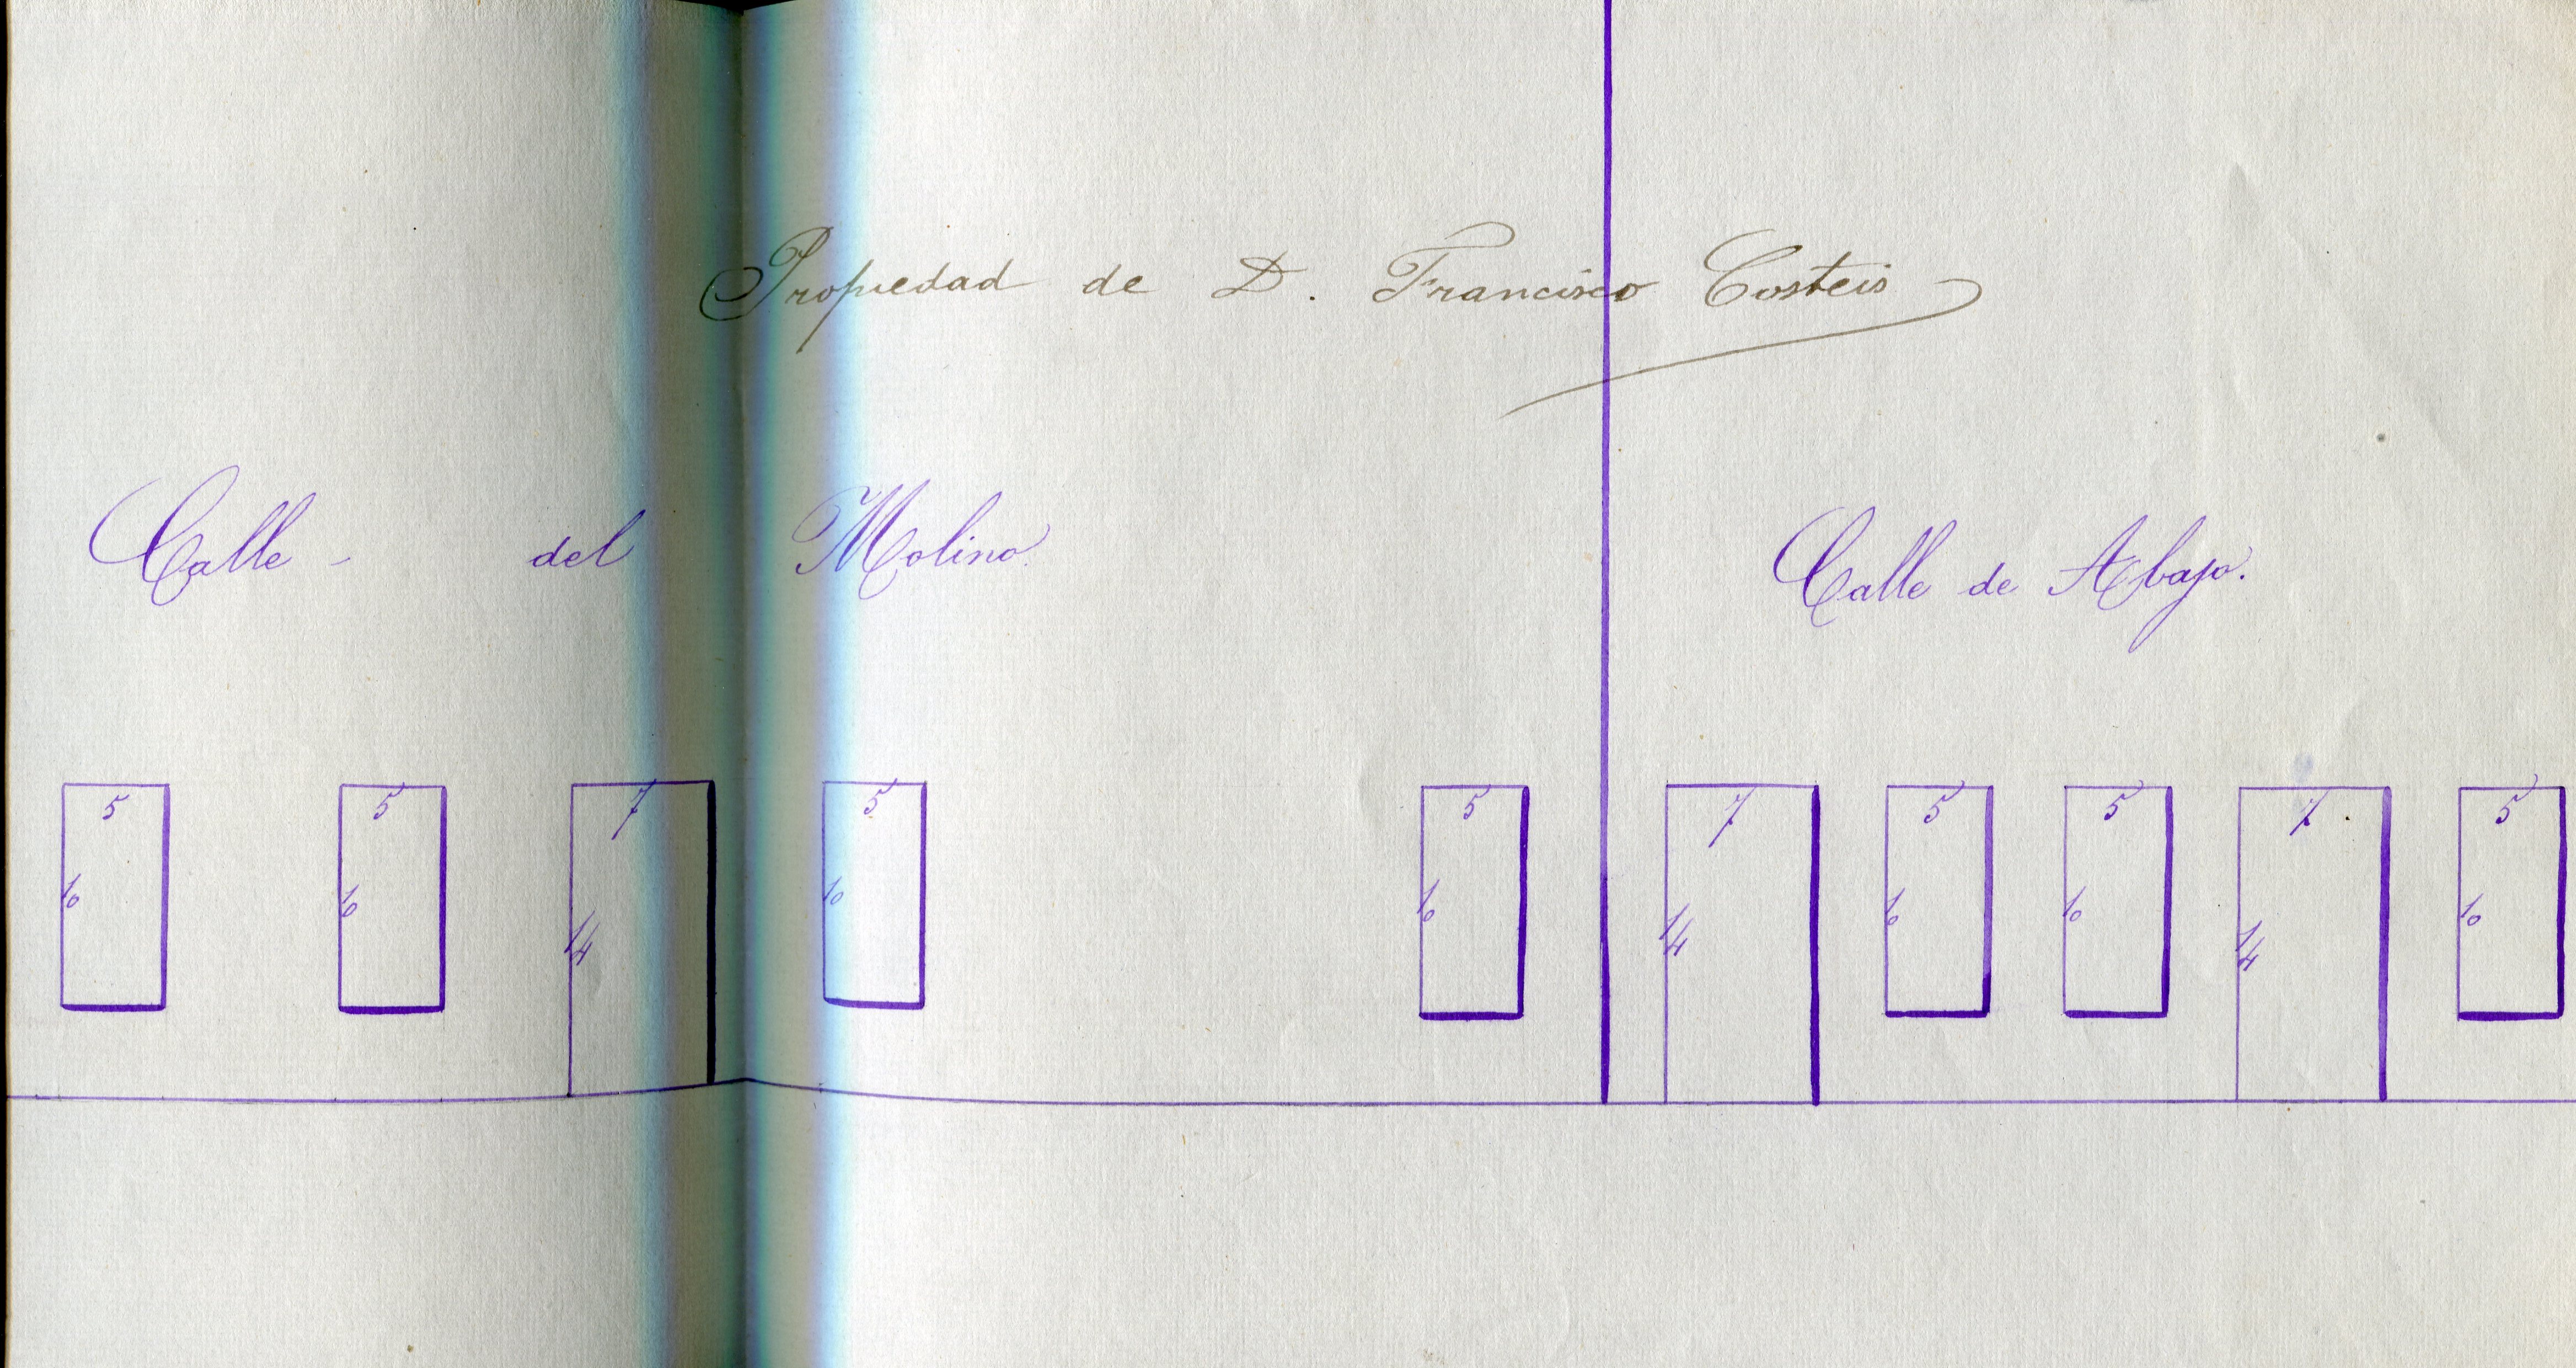 Propiedad de D. Francisco Costeis
Calle - del Molino.
Calle de Abajo.
5 5 7 5 5 7 5 5 7 5
10 10 14 10 10 14 10 10 14 10